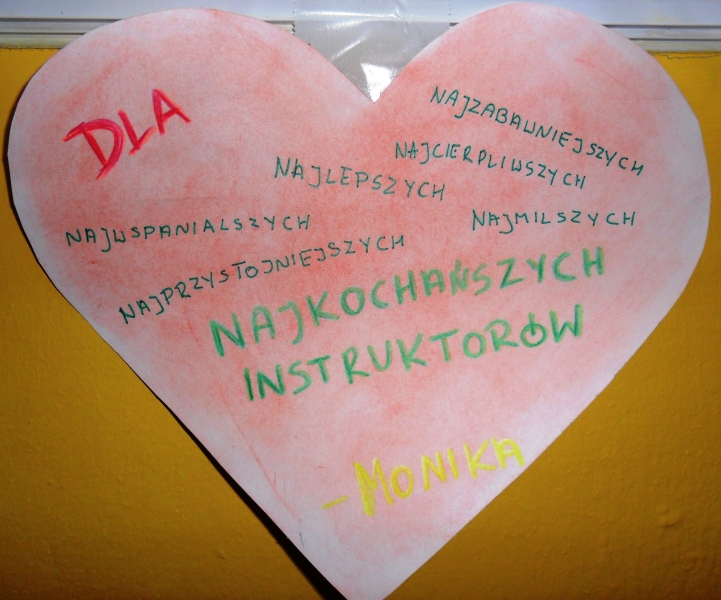 DLA
NAJZABAWNIEJSZYCH
NAJCIERPLIWSZYCH
NAJLEPSZYCH
NAJMILSZYCH
NAJWSPANIALSZYCH
NAJPRZYSTOJNIEJSZYCH
NAJKOCHAŃSZYCH
INSTRUKTORÓW
- MONIKA